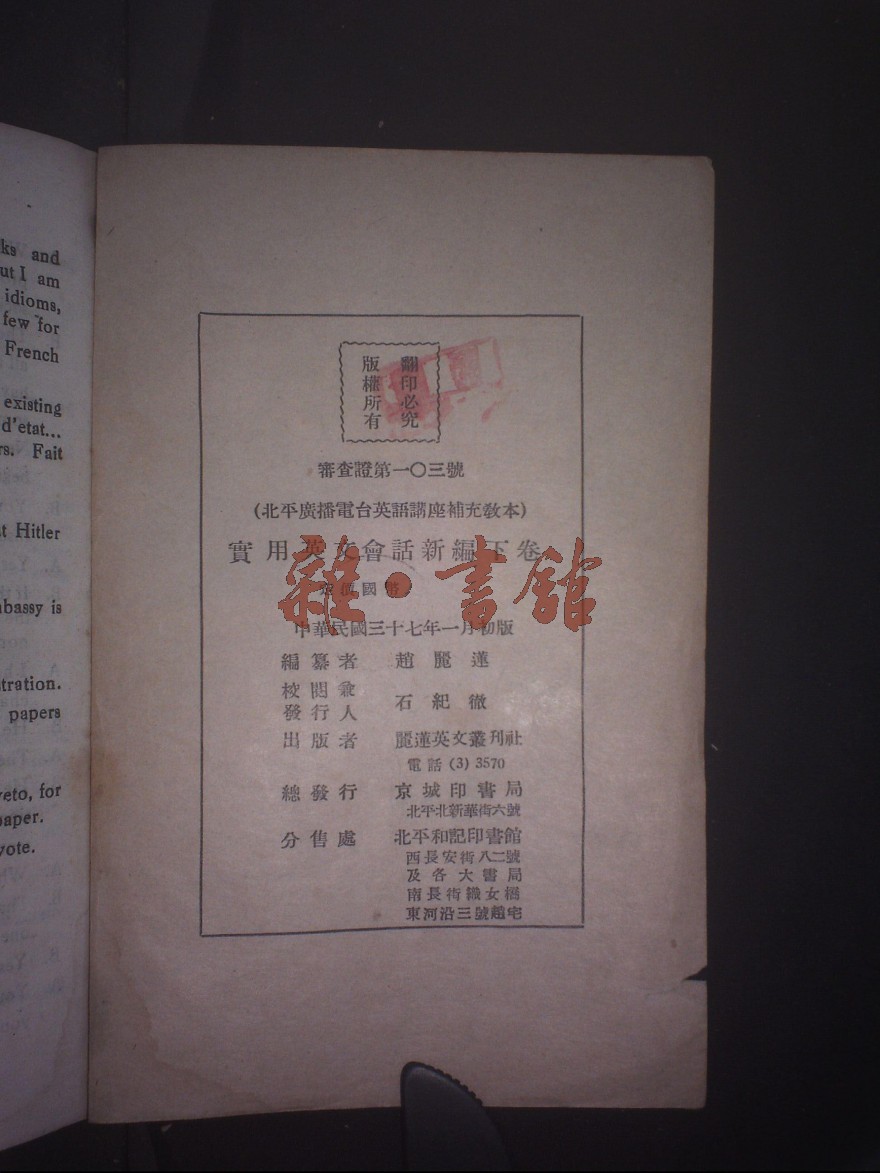 ks and
ut I am
idioms,
few for
French
existing
d'etat...
rs. Fait
t Hitler
bassy is
tration.
papers
veto, for
paper.
vote.
版權所有
翻印必究
審查證第一〇三號
(北平廣播電台英語講座補充敎本)
實用英文會話新編下卷
定價國幣
雜·書館
中華民國三十七年一月初版
編纂者 趙麗蓮
校閱兼
發行人 石紀徹
出版者 麗蓮英文叢刊社
電話 (3) 3570
總發行 京城印書局
北平北新華街六號
分售處 北平和記印書館
西長安街八二號
及各大書局
南長街織女橋
東河沿三號趙宅